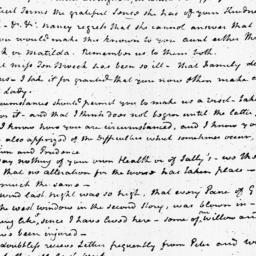 terms the grateful sense she has of your kindness
many regret that she cannot answer that
would make this known to you aunt either the
or Matilda. Remember us to them both.
Miss Ten Broeck has been so ill - that family de
I take it for granted that you now often make a
Lady.
circumstances should permit you to make us a visit - take
for it - and that I think does not begin until the latter
know how you are circumstanced, and I know you
also apprized of the difficulties which sometimes occur
and Prudence
say nothing of your own Health or of Sally's - was th
that no alteration for the worse has taken place -
much the same -
wind last night was so high, that every Pane of G
the west window in the second story, was blown in -
since I have lived here - some of my Willow an
been injured -
doubtless receive Letters frequently from Peter and w